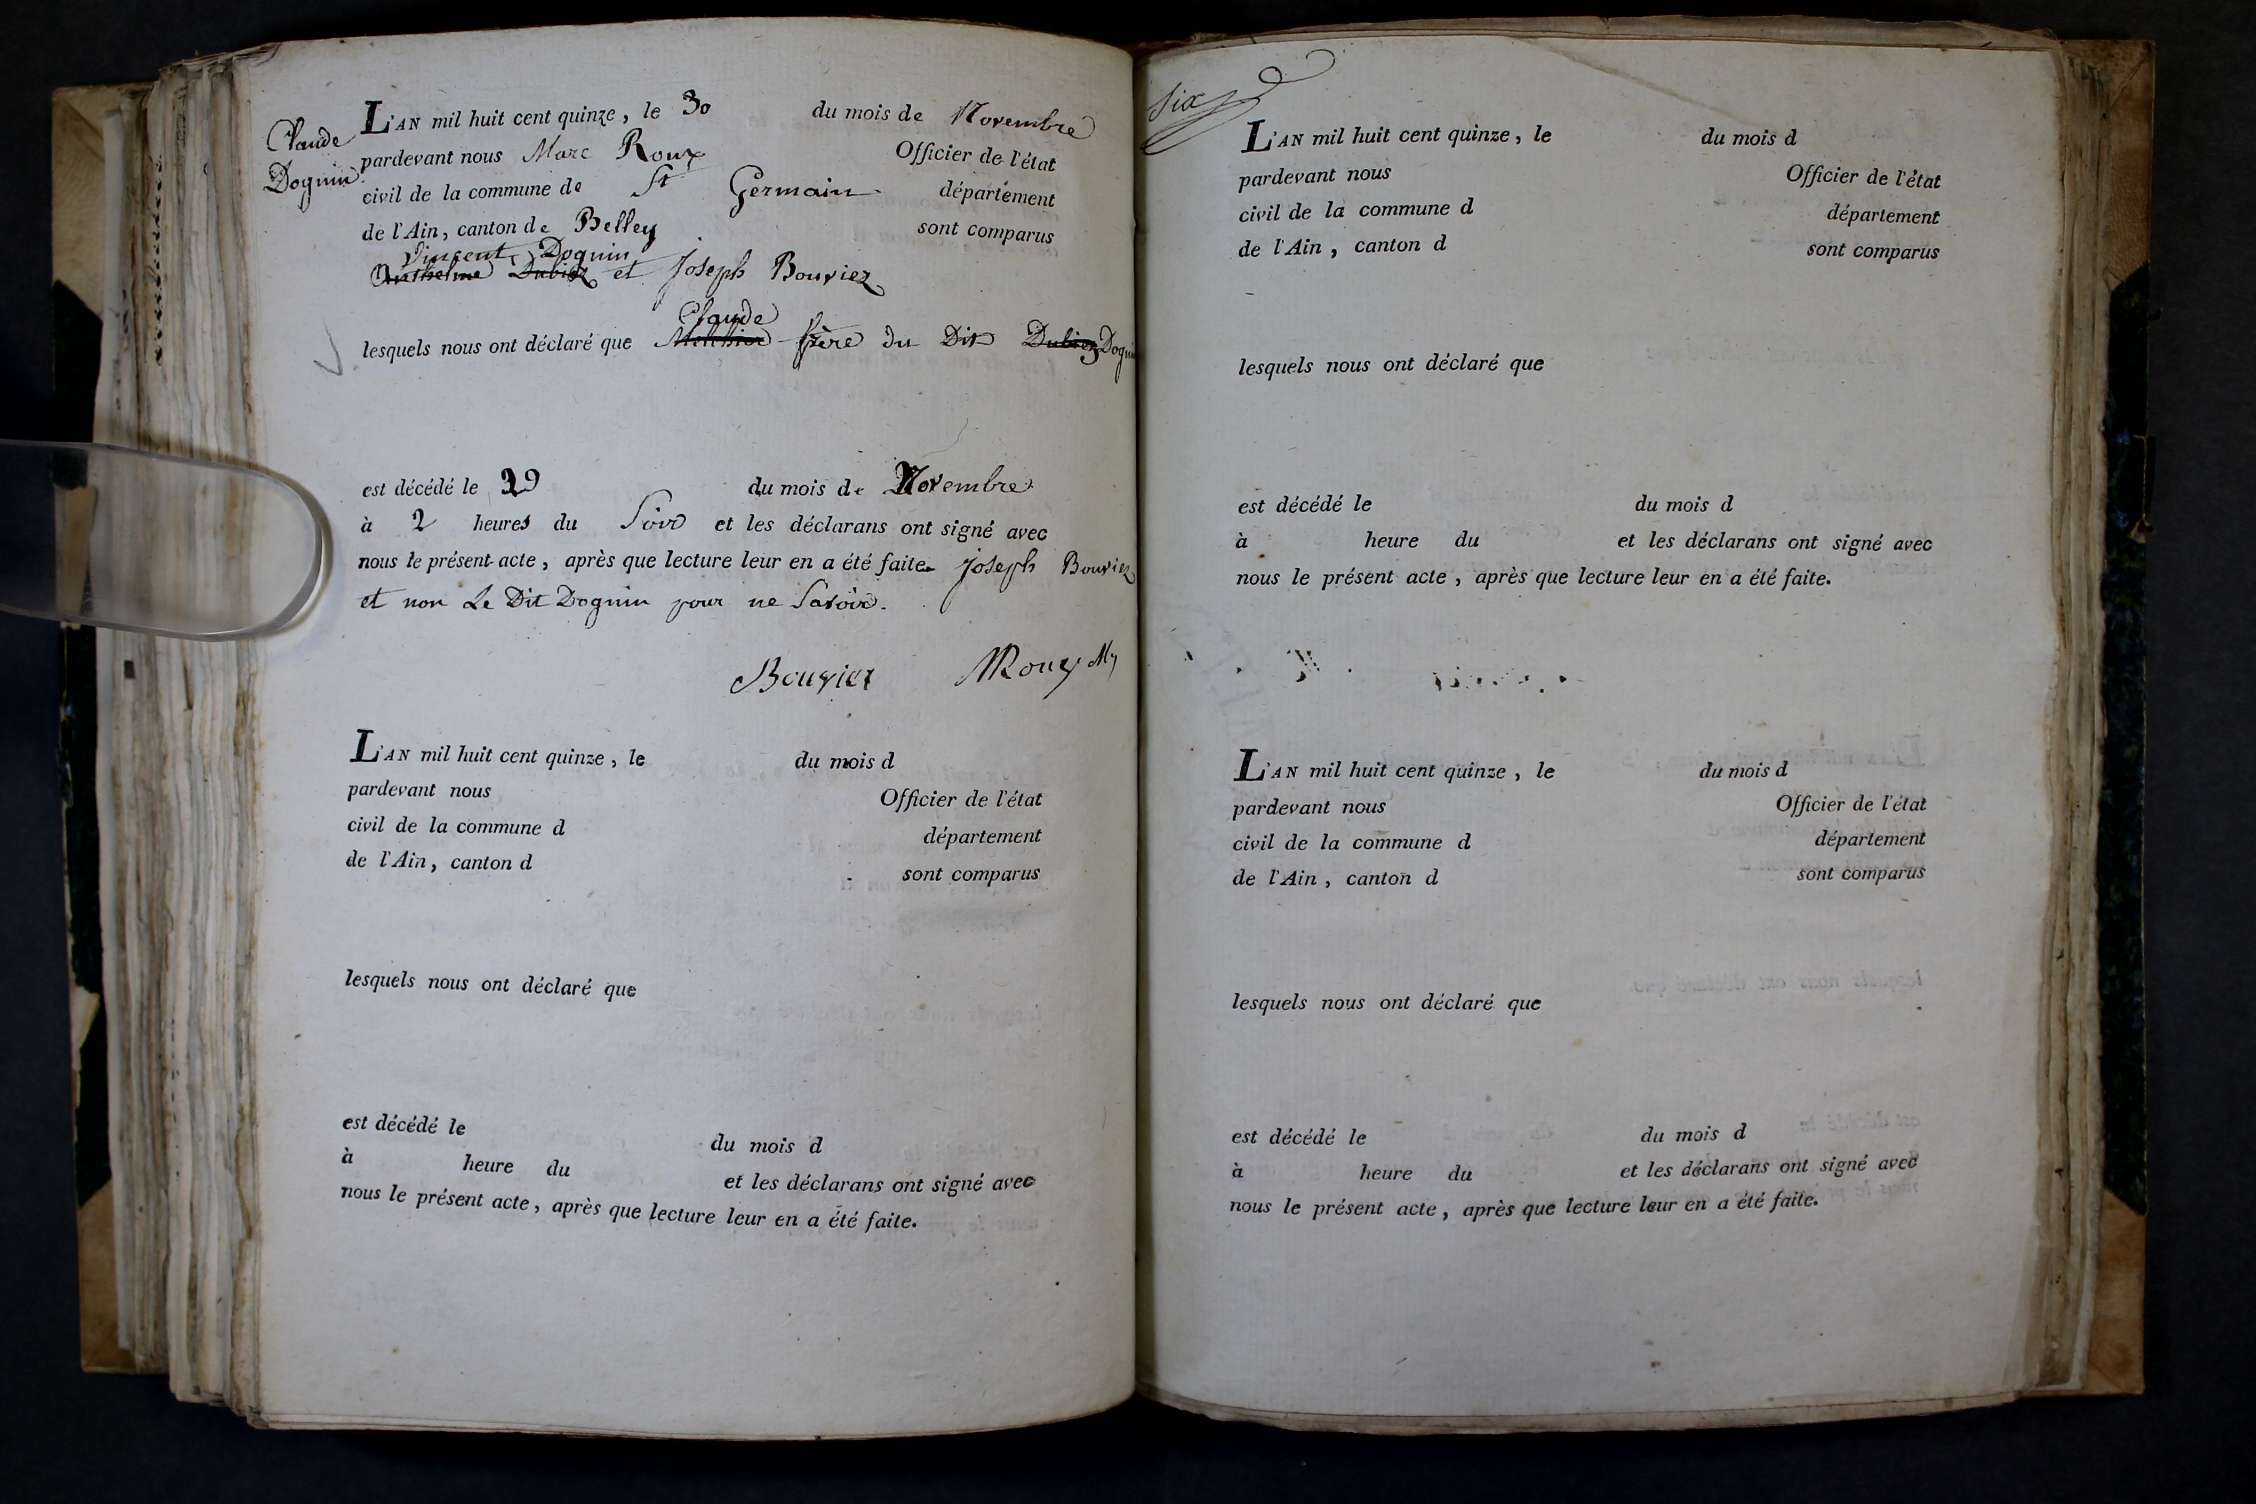 Claude
Doguin
L'AN mil huit cent quinze, le 30 du mois de Novembre
pardevant nous Marc Roux Officier de l'état
civil de la commune de St Germain département
de l'Ain, canton de Belley sont comparus
Vincent Doguin
Anthelme Dubiez et Joseph Bouviez
Claude
lesquels nous ont déclaré que Melchior frère du Dit Dubiez Doguin
est décédé le 29 du mois de Novembre
à 2 heures du Soir et les déclarans ont signé avec
nous le présent acte, après que lecture leur en a été faite. Joseph Bouviez
et non Le Dit Doguin pour ne Savoir.
Bouvier MRoux
L'AN mil huit cent quinze, le du mois d
pardevant nous Officier de l'état
civil de la commune d département
de l'Ain, canton d sont comparus
lesquels nous ont déclaré que
est décédé le du mois d
à heure du et les déclarans ont signé avec
nous le présent acte, après que lecture leur en a été faite.
Six
L'AN mil huit cent quinze, le du mois d
pardevant nous Officier de l'état
civil de la commune d département
de l'Ain, canton d sont comparus
lesquels nous ont déclaré que
est décédé le du mois d
à heure du et les déclarans ont signé avec
nous le présent acte, après que lecture leur en a été faite.
L'AN mil huit cent quinze, le du mois d
pardevant nous Officier de l'état
civil de la commune d département
de l'Ain, canton d sont comparus
lesquels nous ont déclaré que
est décédé le du mois d
à heure du et les déclarans ont signé avec
nous le présent acte, après que lecture leur en a été faite.